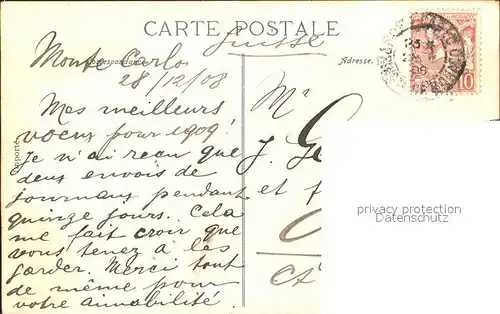 CARTE POSTALE
Suisse
Correspondance
Adresse.
Monte Carlo
28/12/08
Mes meilleurs
voeux pour 1909!
Je n'ai reçu que
deux envois de
journaux pendant
quinze jours. Cela
me fait croir que
vous tenez à les
garder. Merci tout
de même pour
votre aimabilité.
Mr
J. G
et f
10
privacy protection
www.ansichtskarten-center.de